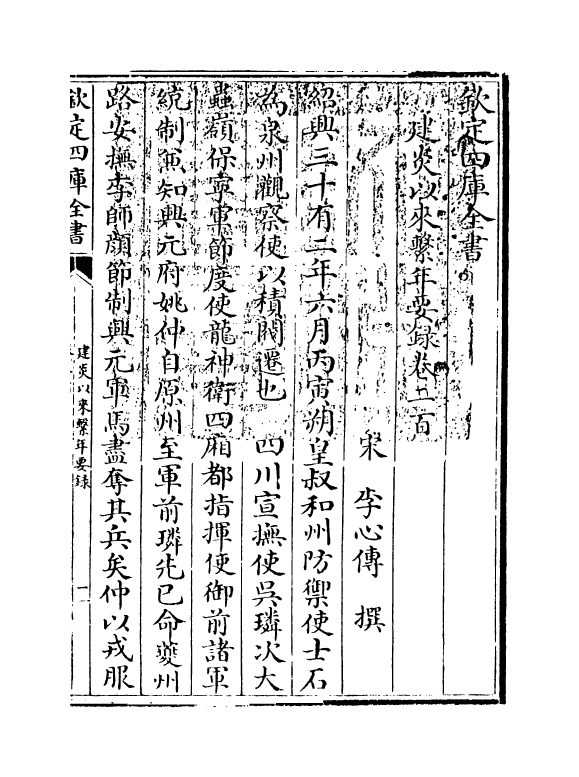 欽定四庫全書
建炎以來繫年要錄卷二百
宋 李心傳 撰
紹興三十有二年六月丙寅朔皇叔和州防禦使士石
為泉州觀察使以積閥遷也 四川宣撫使吳璘次大
蟲嶺保寧軍節度使龍神衛四廂都指揮使御前諸軍
統制兼知興元府姚仲自原州至軍前璘先已命夔州
路安撫李師顔節制興元軍馬盡奪其兵矣仲以戎服
欽定四庫全書
建炎以來繫年要錄
一